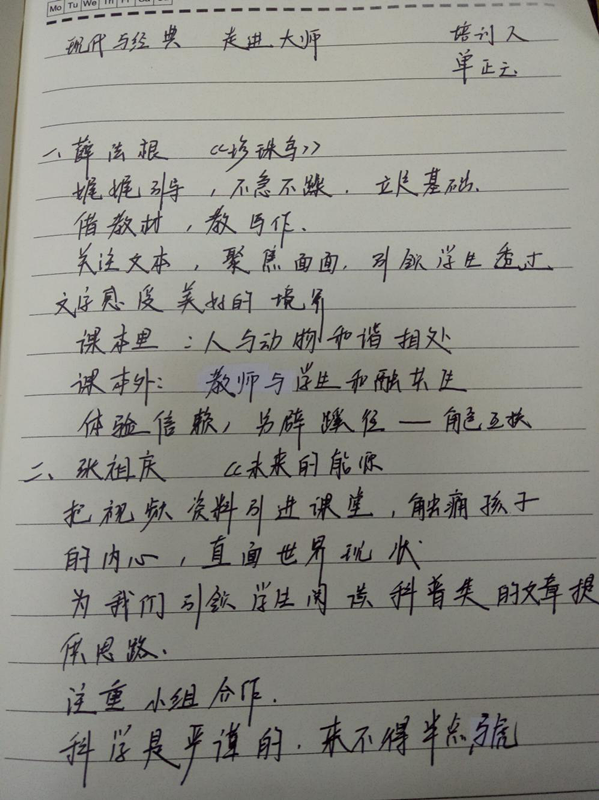 Mo Tu We Th Fr Sa Su
现代与经典 走进大师 培训人
单正云
一、薛法根 《珍珠鸟》
娓娓引导，不急不躁．立足基础．
借教材，教写作．
关注文本，聚焦画面．引领学生透过
文字感受美好的境界
课本里：人与动物和谐相处
课本外：教师与学生和融共生
体验信赖，另辟蹊径——角色互换
二、张祖庆 《未来的能源
把视频资料引进课堂，触痛孩子
的内心，直面世界现状
为我们引领学生阅读科普类的文章提
供思路．
注重小组合作．
科学是严谨的．来不得半点马虎